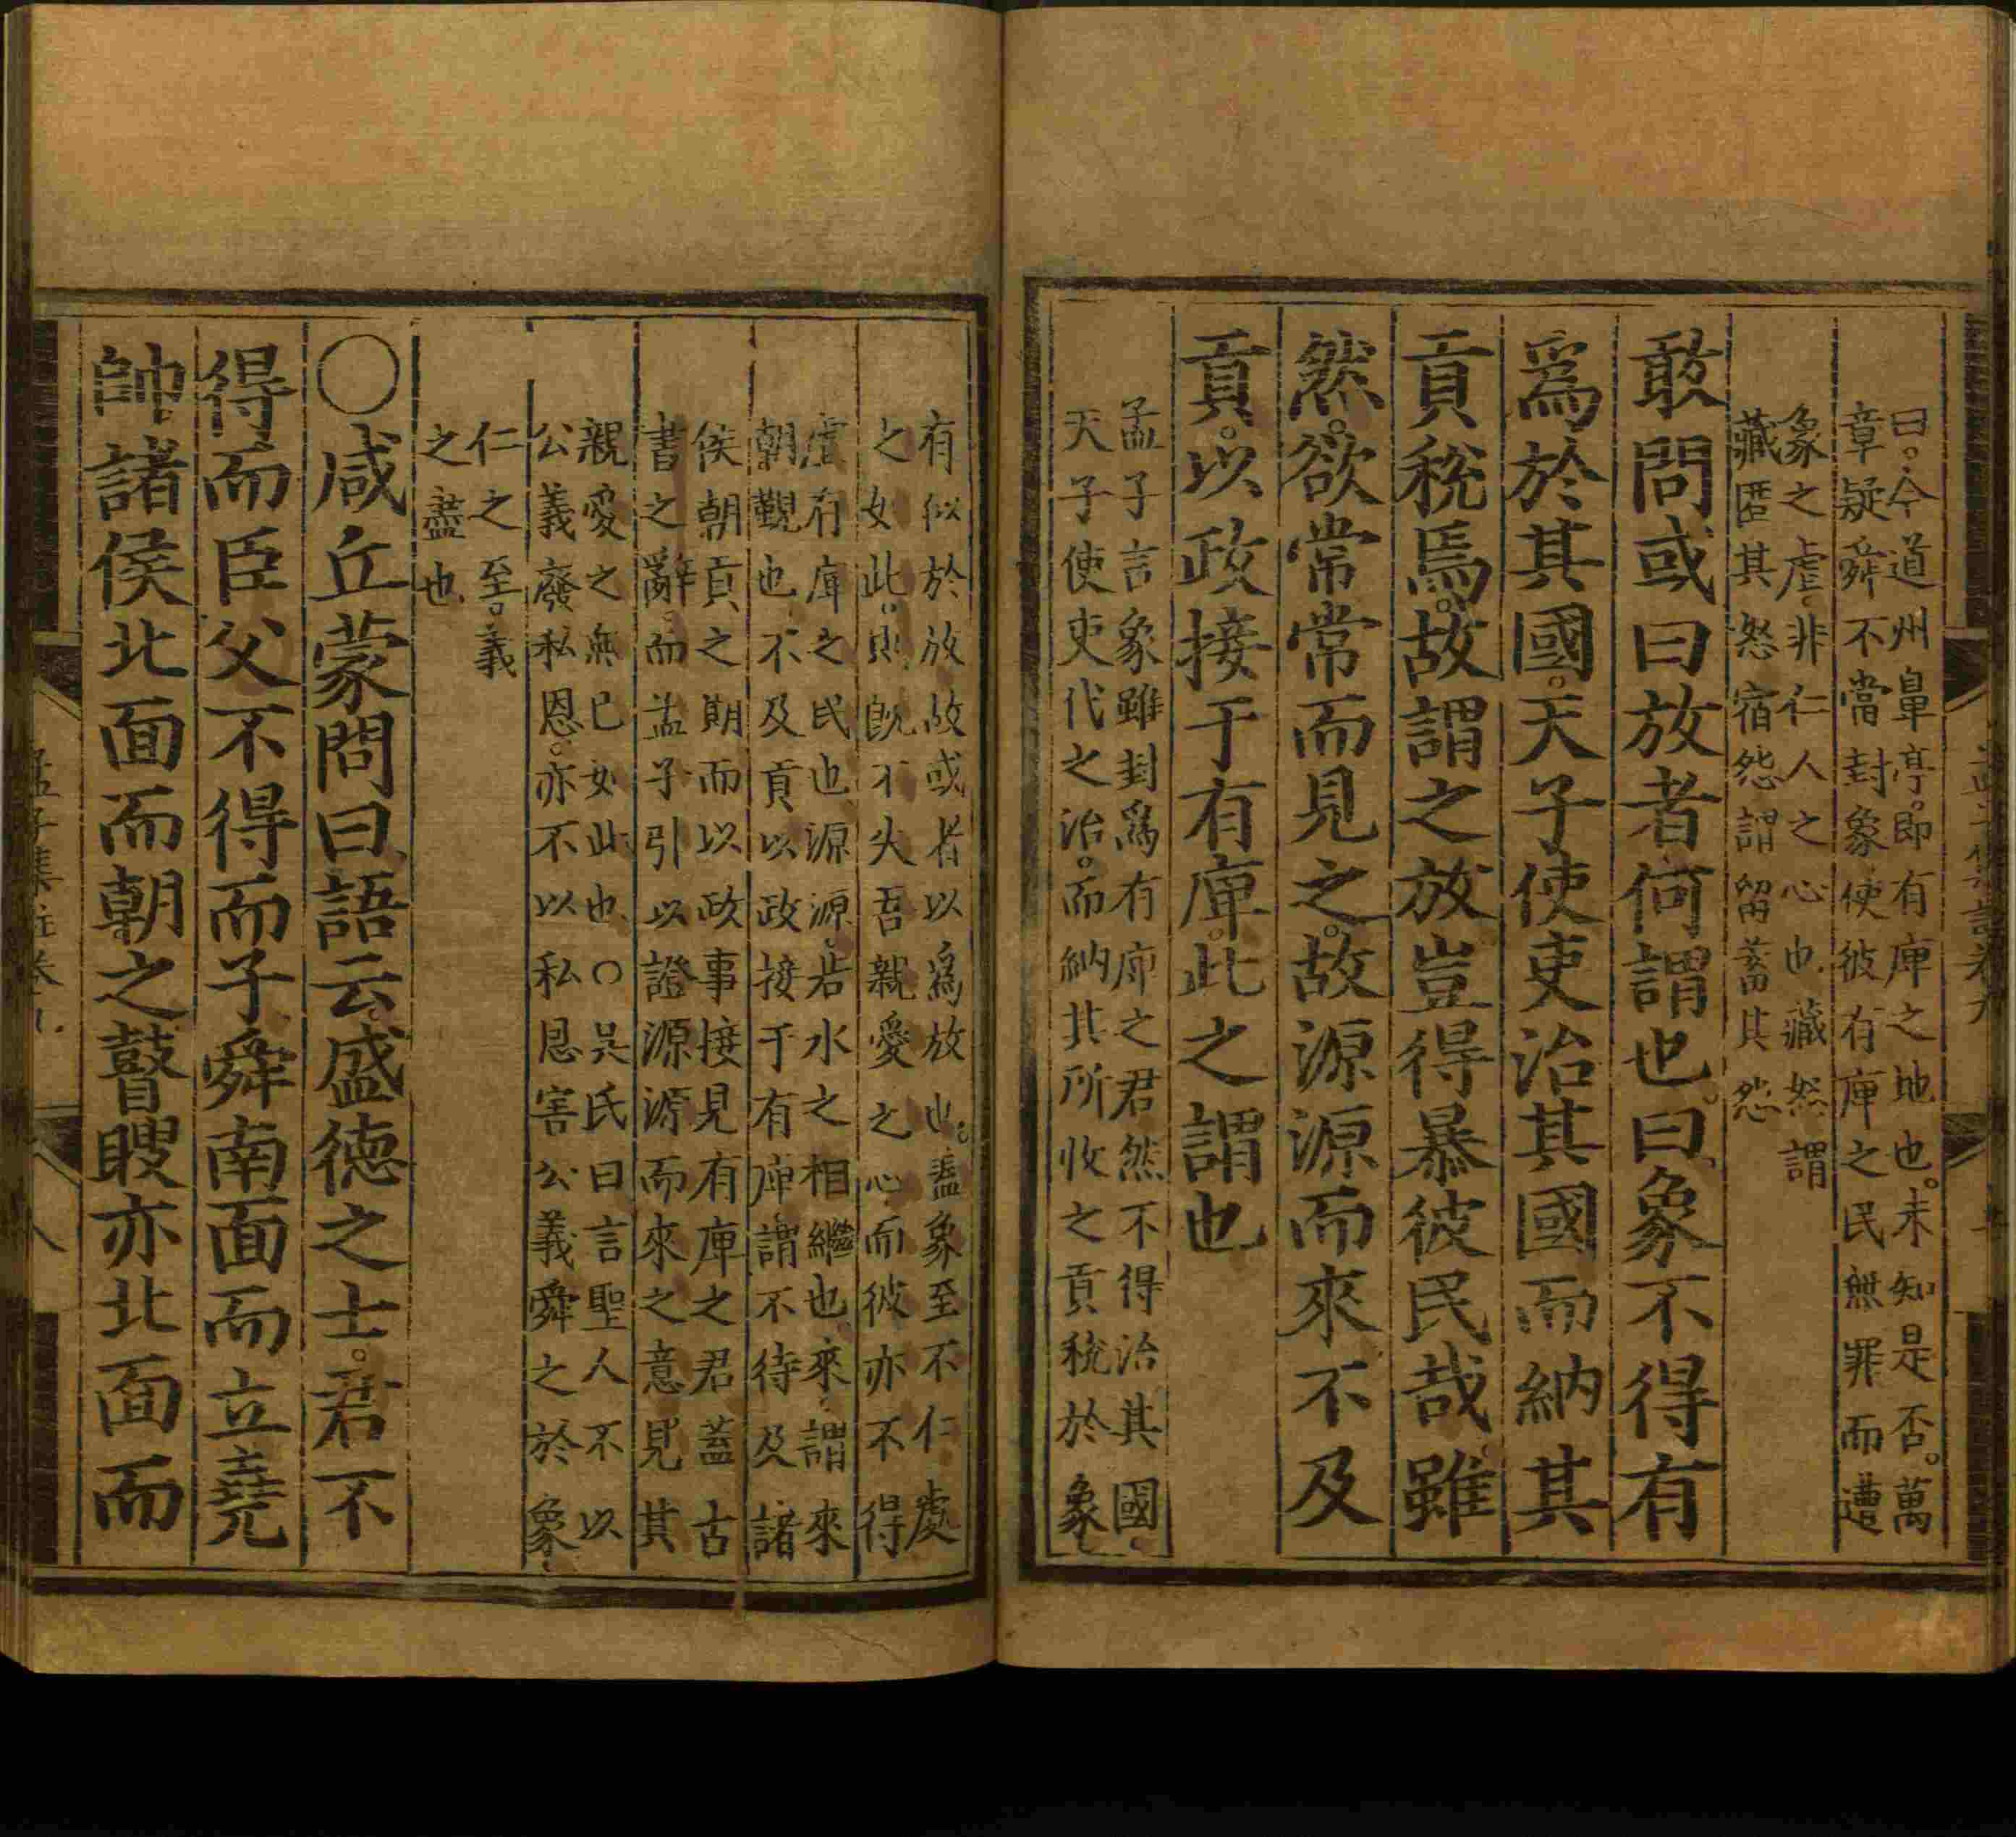 曰。今道州鼻亭。即有庳之地也。未知是否。萬
章疑舜不當封象使彼有庳之民無罪而遭
象之虐。非仁人之心也。藏怒謂
藏匿其怒宿怨謂留蓄其怨
敢問或曰放者何謂也。曰象不得有
爲於其國。天子使吏治其國而納其
貢稅焉。故謂之放豈得暴彼民哉。雖
然。欲常常而見之。故源源而來不及
貢。以政接于有庳。此之謂也
孟子言象雖封爲有庳之君然不得治其國。
天子使吏代之治。而納其所收之貢稅於象。
有似於放故或者以爲放也。蓋象至不仁處
之如此。則既不失吾親愛之心。而彼亦不得
虐有庳之民也源源。若水之相繼也來。謂來
朝覲也。不及貢以政接于有庳。謂不待及諸
侯朝貢之期而以政事接見有庳之君蓋古
書之辭。而孟子引以證源源而來之意見其
親愛之無已如此也。○吳氏曰言聖人不以
公義廢私恩。亦不以私恩害公義舜之於象。
仁之至。義
之盡也。
○咸丘蒙問曰語云。盛德之士。君不
得而臣父不得而子舜南面而立堯
帥。諸侯北面而朝之瞽瞍亦北面而
孟子集註卷九